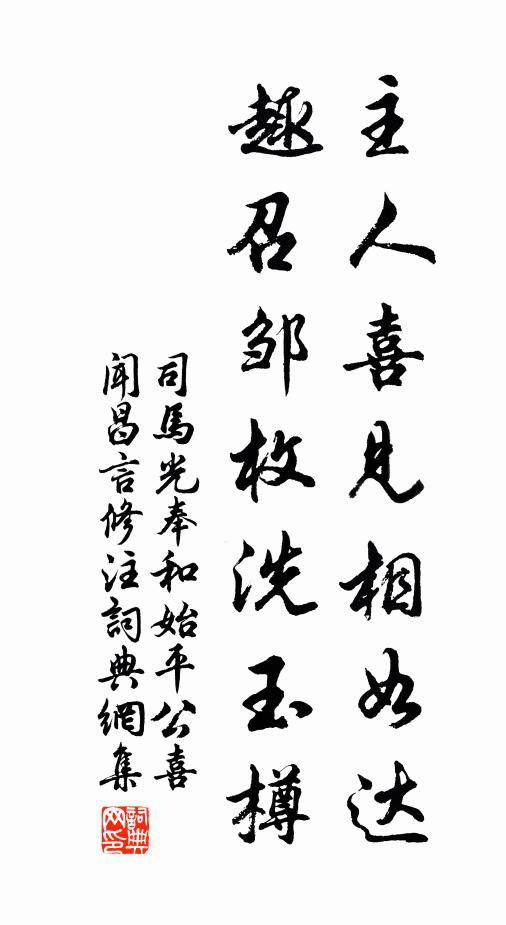 主人喜見相如达
趣召邹枚洗玉樽
司馬光奉和始平公喜
聞昌言修注詞典網集
詞典网印